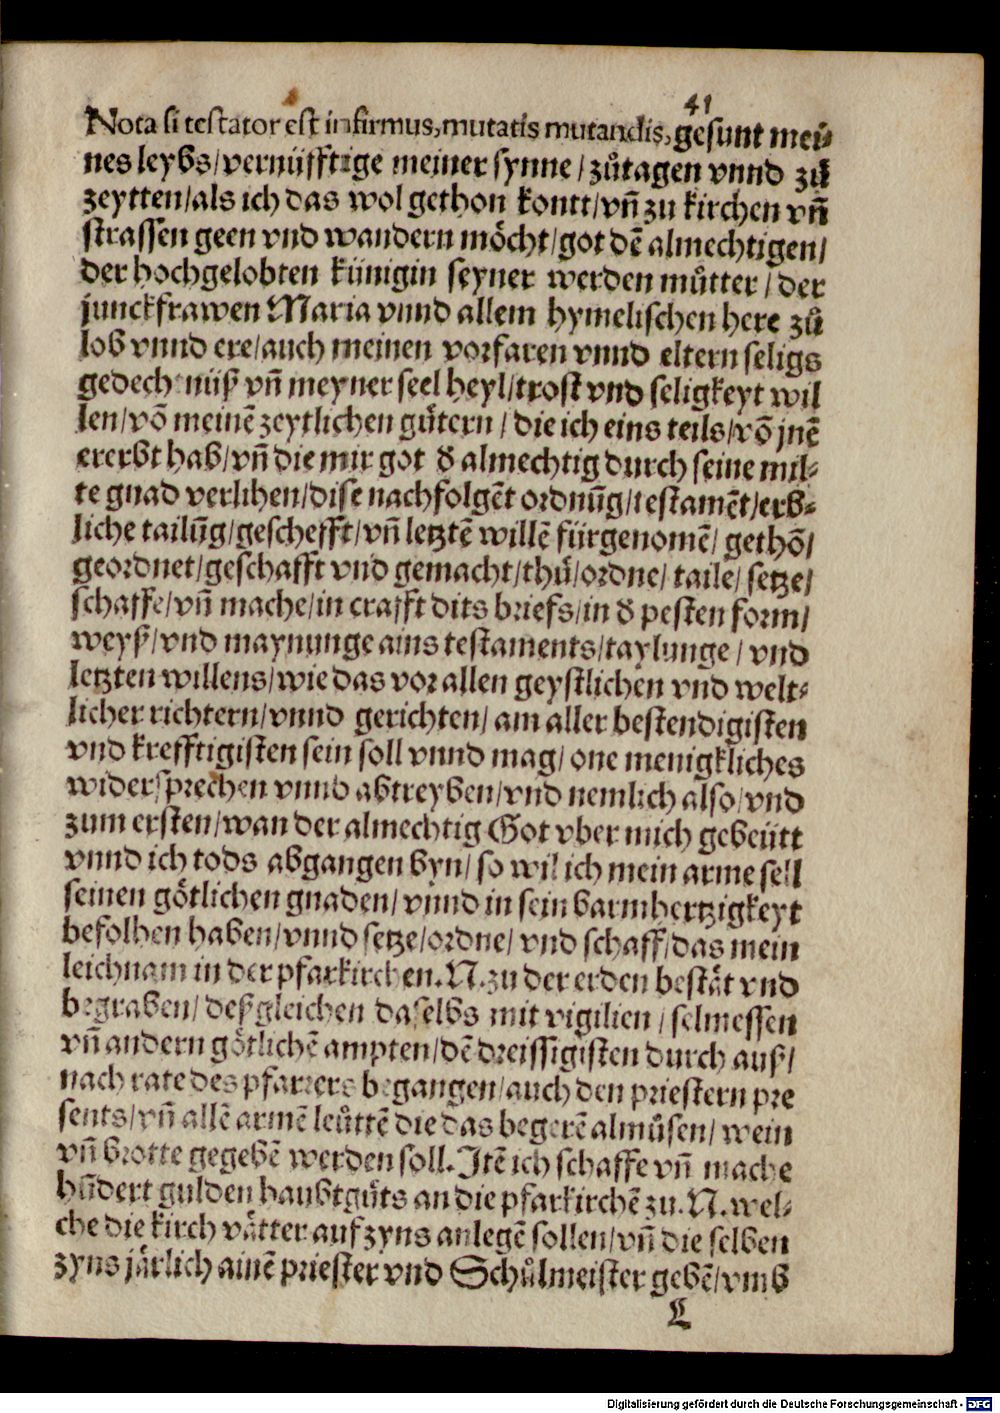 41
Nota si testator est infirmus, mutatis mutandis, gesunt meῦ⸗
nes leybs/vernüfftige meiner synne/zůtagen vnnd zů
zeytten/als ich das wol gethon kontt/vñ zu kirchen vñ
strassen geen vnd wandern möcht/got dē almechtigen/
der hochgelobten künigin seyner werden můtter/der
junckfrawen Maria vnnd allem hymelischen here zů
lob vnnd ere/auch meinen vorfaren vnnd eltern seligs
gedechtnüß vñ meyner seel heyl/trost vnd seligkeyt wil
len/võ meinē zeytlichen gůtern/die ich eins teils/võ jnē
ererbt hab/vñ die mir got đ almechtig durch seine mil⸗
te gnad verlihen/dise nachfolgēt ordnūg/testamēt/erb⸗
liche tailūg/geschefft/vñ letztē willē fürgenomē/gethō/
geordnet/geschafft vnd gemacht/thů/ordne/taile/setze/
schaffe/vñ mache/in crafft dits briefs/in đ pesten form/
weyß/vnd maynunge ains testaments/taylunge/vnd
letzten willens/wie das vor allen geystlichen vnd welt⸗
licher richtern/vnnd gerichten/am aller bestendigisten
vnd krefftigisten sein soll vnnd mag/one menigkliches
widersprechen vnnd abtreyben/vnd nemlich also/vnd
zum ersten/wan der almechtig Got vber mich gebeütt
vnnd ich tods abgangen byn/so wil ich mein arme sell
seinen götlichen gnaden/vnnd in sein barmhertzigkeyt
befolhen haben/vnnd setze/ordne/vnd schaff/das mein
leichnam in der pfarkirchen.N.zu der erden bestät vnd
begraben/deßgleichen daselbs mit vigilien/selmessen
vñ andern götlichē ampten/dē dreissigisten durch auß/
nach rate des pfarrers begangen/auch den priestern pre
sents/vñ allē armē leůttē die das begerē almůsen/wein
vñ brotte gegebē werden soll.Itē ich schaffe vñ mache
hūdert gulden haubtgůts an die pfarkirchē zu.N.wel⸗
che die kirch vätter auf zyns anlegē sollen/vñ die selben
zyns järlich ainē priester vnd Schůlmeister gebē/vmb
L
Digitalisierung gefördert durch die Deutsche Forschungsgemeinschaft - DFG